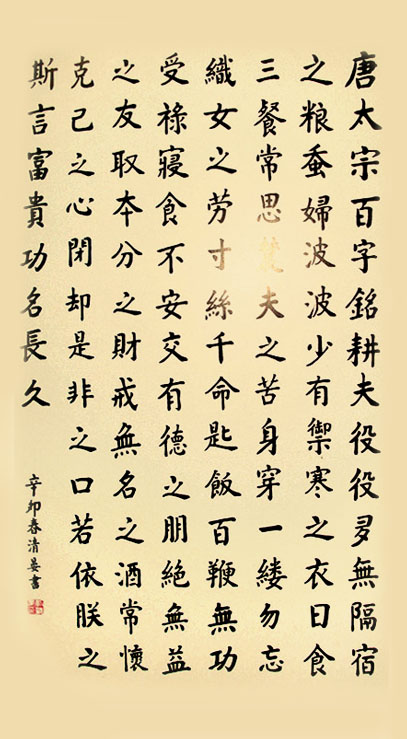 唐太宗百字銘耕夫役役多無隔宿
之粮蚕婦波波少有禦寒之衣日食
三餐常思農夫之苦身穿一縷勿忘
織女之劳寸絲千命匙飯百鞭無功
受禄寢食不安交有德之朋絶無益
之友取本分之財戒無名之酒常懷
克己之心閉却是非之口若依朕之
斯言富貴功名長久
辛卯春清晏書